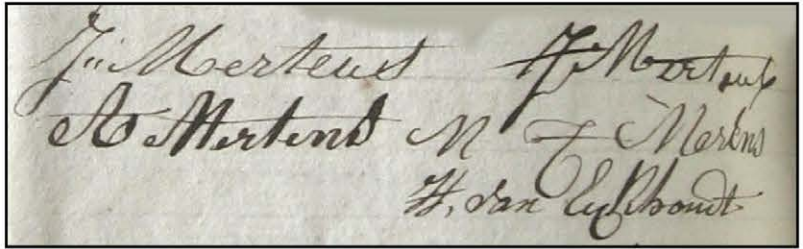 J:" Mertens J. Mertens
A Mertens M J Mertns
H, Van Eykhoudt